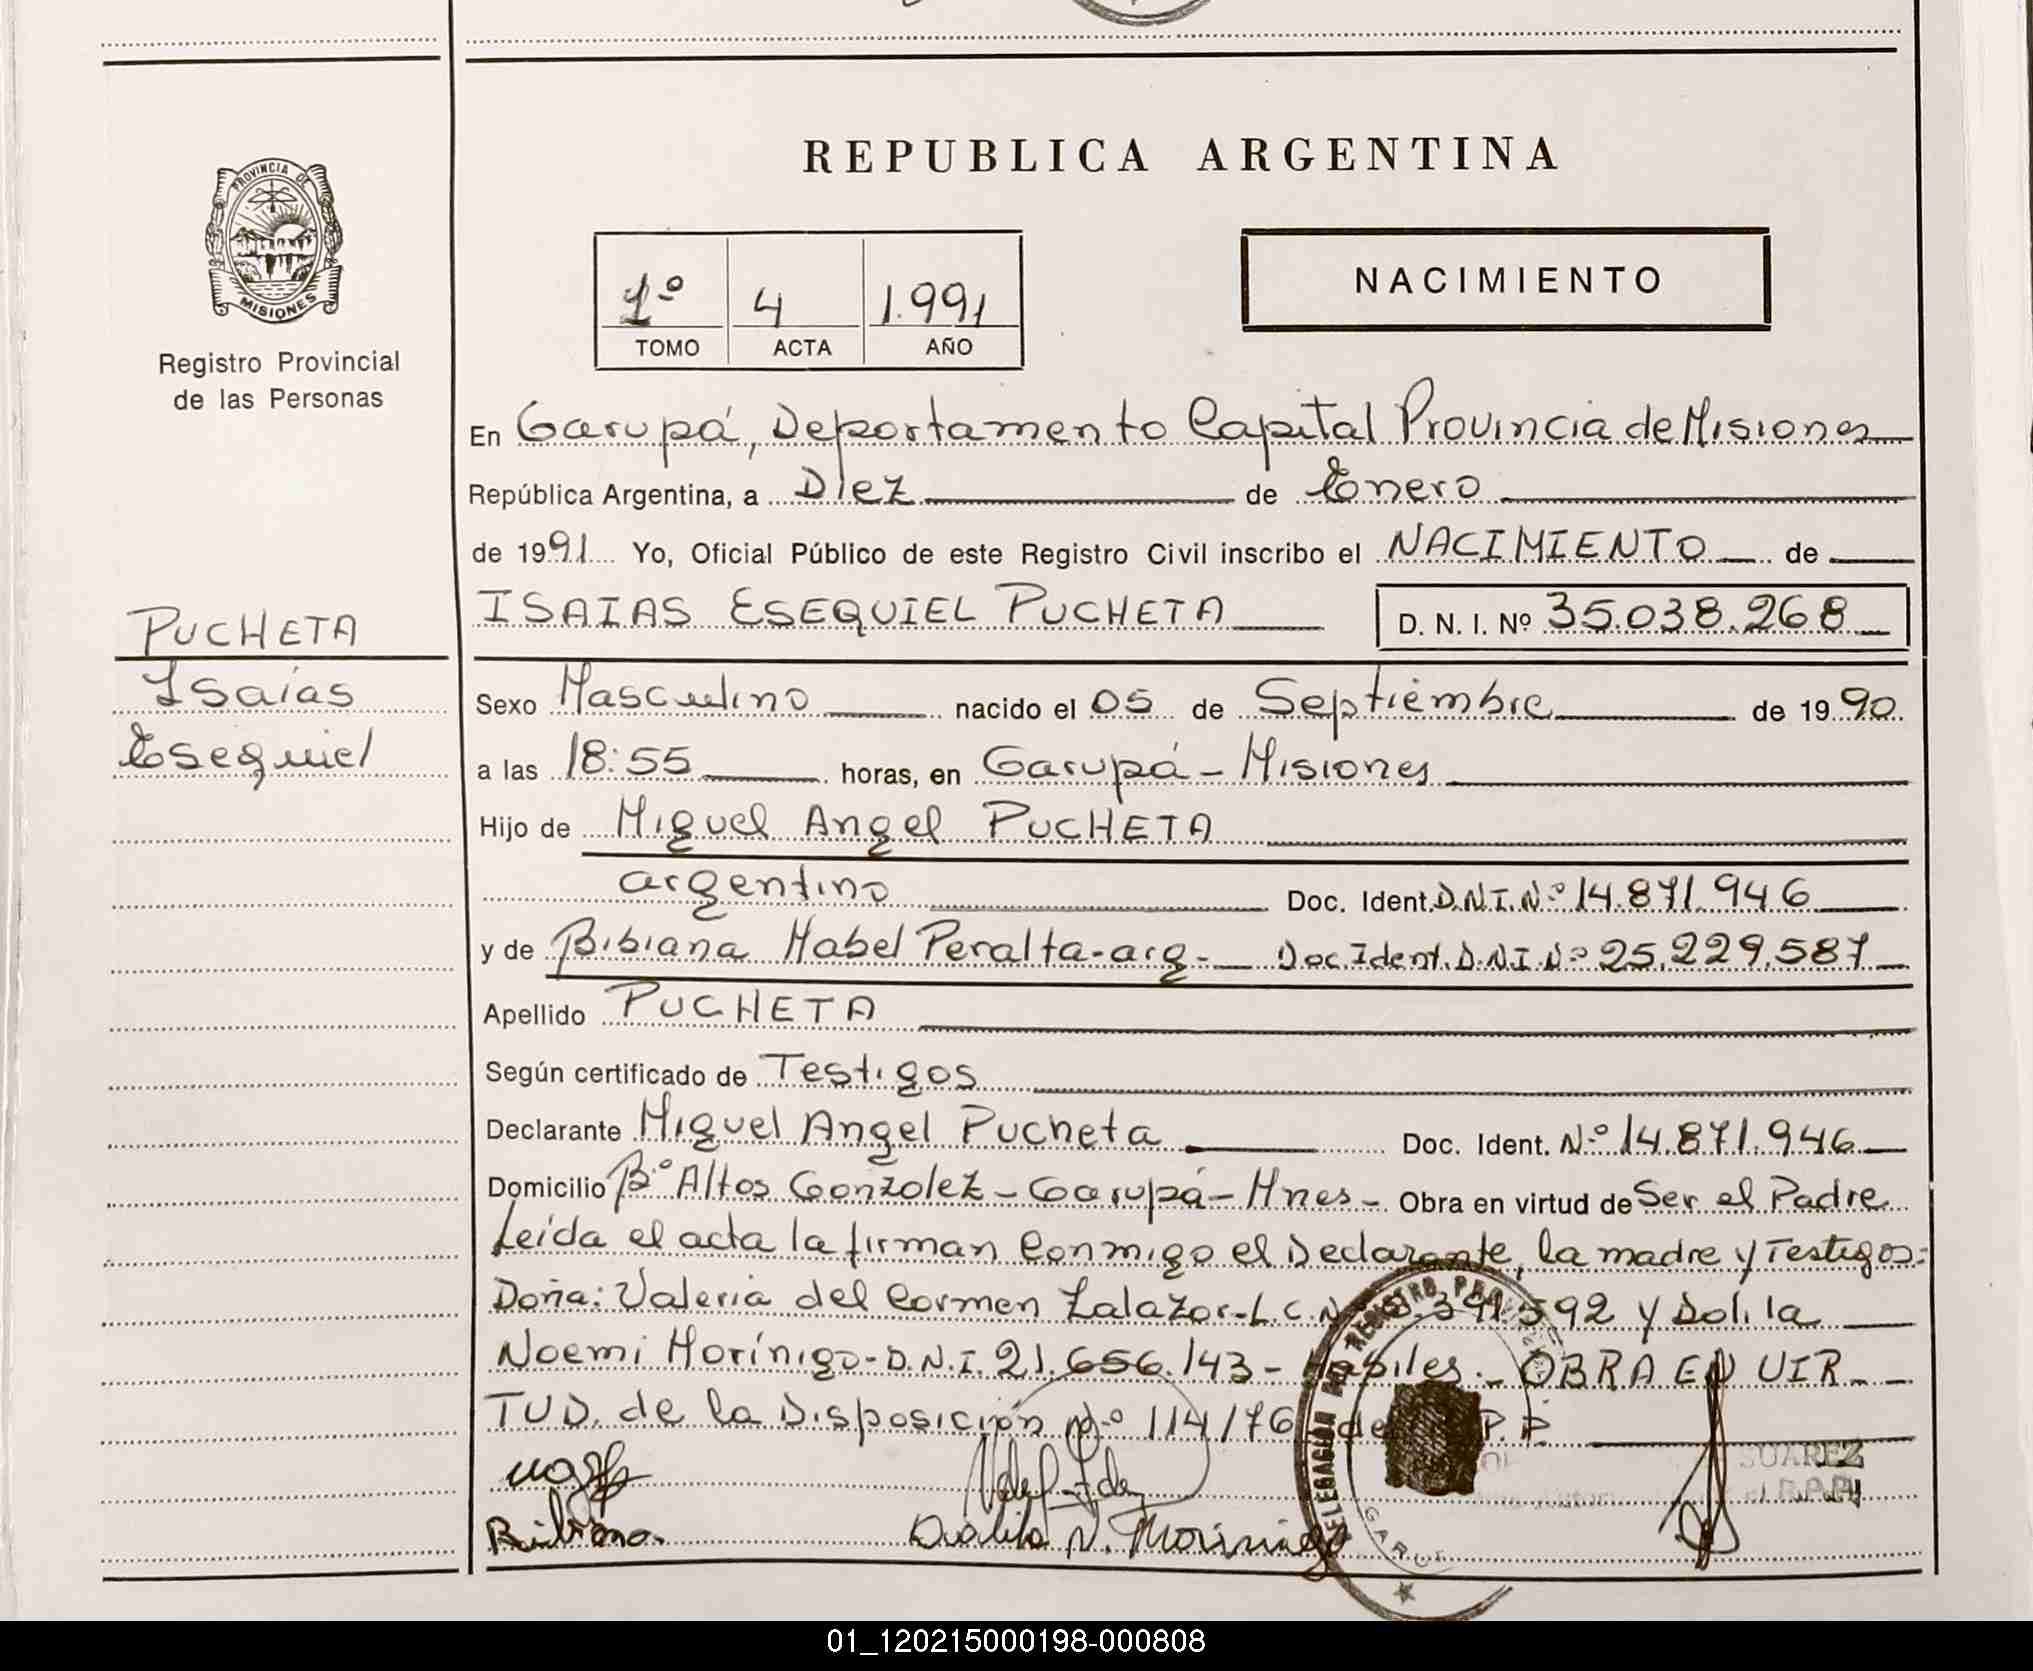 REPUBLICA ARGENTINA
PROVINCIA DE
MISIONES
Registro Provincial
de las Personas
1º 4 1.991
TOMO ACTA AÑO
NACIMIENTO
En Garupá, Departamento Capital Provincia de Misiones
República Argentina, a Diez de Enero
de 1991 Yo, Oficial Público de este Registro Civil inscribo el NACIMIENTO de
ISAIAS ESEQUIEL PUCHETA D. N. I. Nº 35.038.268
PUCHETA
Isaías
Esequiel
Sexo Masculino nacido el 05 de Septiembre de 1990
a las 18:55 horas, en Garupá - Misiones
Hijo de Miguel Angel PUCHETA
argentino Doc. Ident. D.N.I. Nº 14.871.946
y de Bibiana Mabel Peralta-arg- Doc. Ident. D.N.I. Nº 25.229.587
Apellido PUCHETA
Según certificado de Testigos
Declarante Miguel Angel Pucheta Doc. Ident. Nº 14.871.946
Domicilio Bº Altos Gonzalez - Garupá - Mnes - Obra en virtud de Ser el Padre
Leída el acta la firman Conmigo el Declarante, la madre y Testigos:
Doña: Valeria del Carmen Zalazar-L.C.N .592 y Dolila
Noemi Morínigo-D.N.I. 21.656.143- OBRA EN VIR
TUD. de la Disposición Nº 114/76 de P.P.
Bibiana.
Dolila N. Morinigo
DELEGACIÓN REGISTRO PROVINCIAL
SUAREZ
R.P.P.
01_120215000198-000808